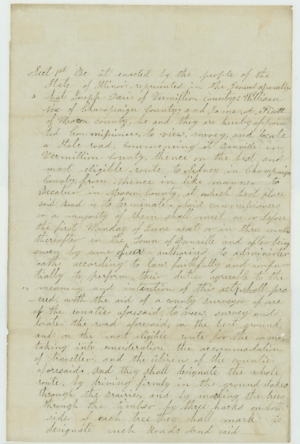 Sect 1st Be it enacted by the people of the
State of Illinois represented in the General Assembly
that Joseph Davis of Vermillion County, William
of Champaign County and
of Macon County, be and they are hereby appoin-
ted Commissioners, to view, survey, and locate
a State road, Commencing at Danville in
Vermillion County, thence on the best, and
most eligible route, to Sidney in Champaign
County, from thence in like manner, to
Decatur in Macon County, at which last place
said Road is to terminate, said commissioners
or a majority of them shall meet on or before
the first Monday of June next or in three months
thereafter in the Town of Danville and after being
sworn by some officer authorized to administer
oaths according to law faithfully and impar-
tially to perform their duties agreeable to the
meaning and intention of this act, shall pro-
ceed, with the aid of a county surveyor of one
of the counties aforesaid, to view, survey and
locate the road aforesaid, on the best ground,
and on the most eligible route for the same,
taking into consideration, the accommodation
of travellers and the citizens of the counties
aforesaid, and they shall designate the whole
route, by driving firmly in the ground stakes
through the prairies, and by marking the trees
through the timber by three hacks on both
sides of each tree shall mark to
designate such Roads and said